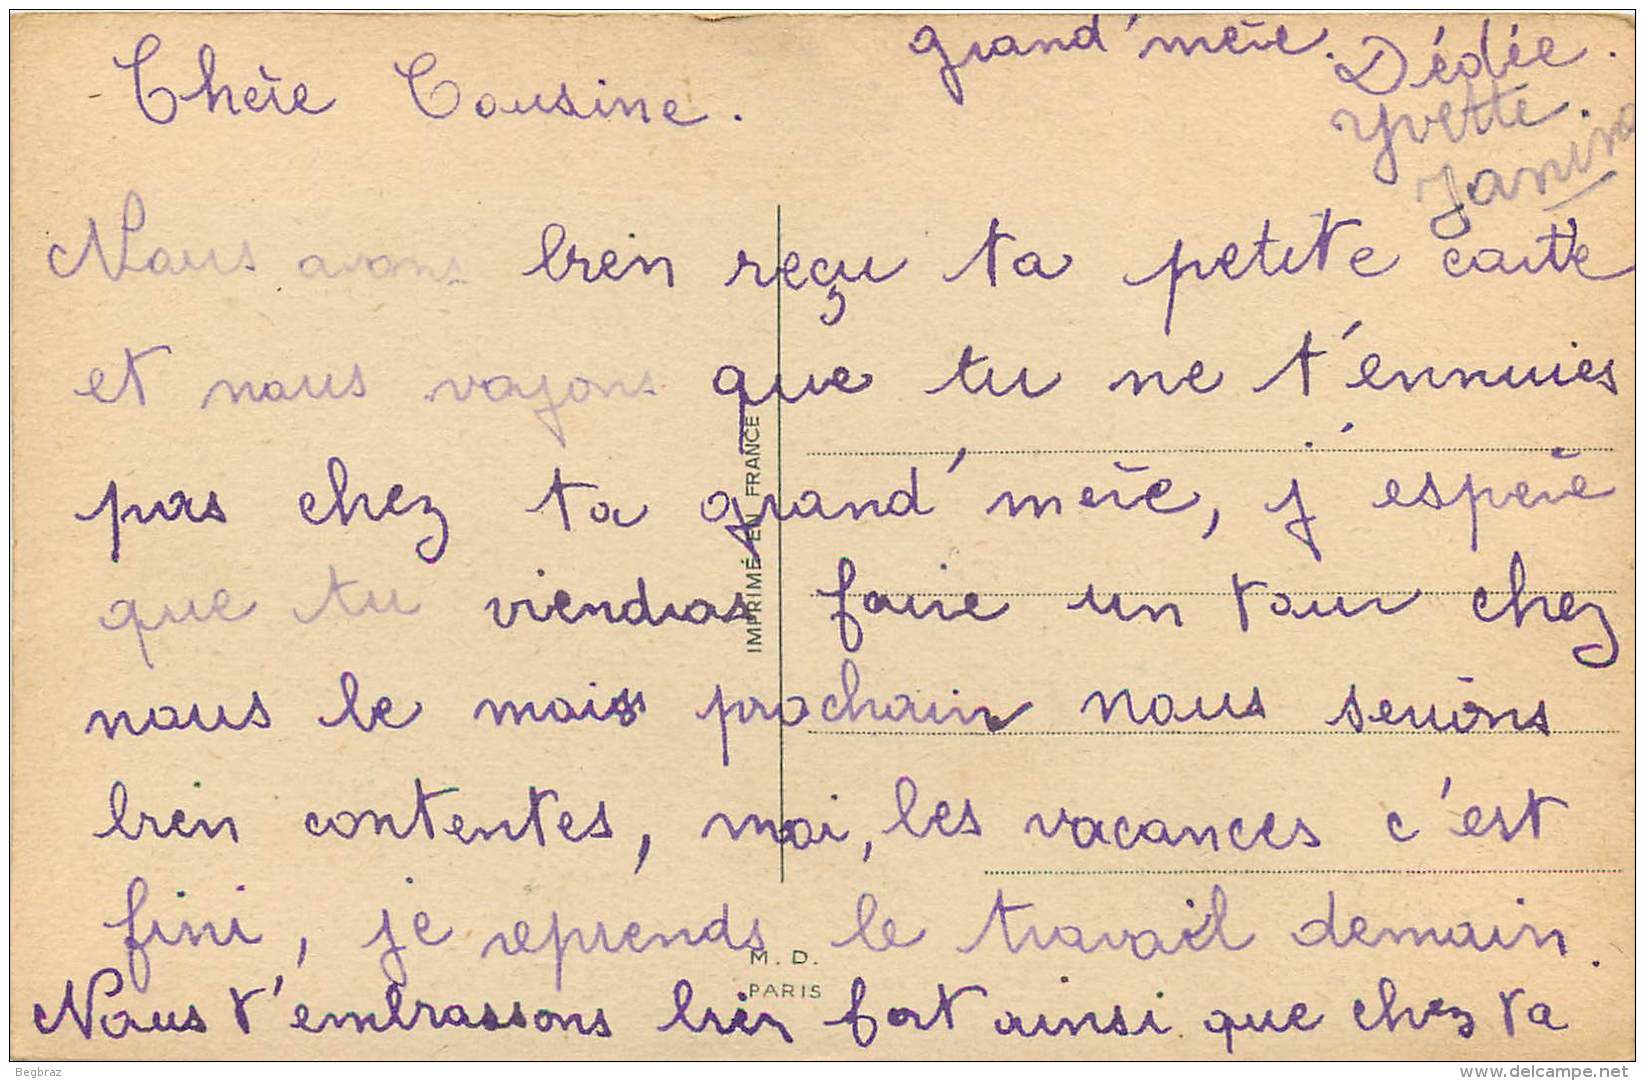 Chère Cousine.
Nous avons bien reçu ta petite carte
et nous voyons que tu ne t'ennuies
pas chez ta grand'mère, j'espère
que tu viendras faire un tour chez
nous le mois prochain nous serions
bien contentes, moi, les vacances c'est
fini, je reprends le travail demain.
Nous t'embrassons bien fort ainsi que chez ta
grand'mère. Dédée.
Yvette.
Janine
IMPRIMÉ EN FRANCE
M. D.
PARIS
Begbraz
www.delcampe.net